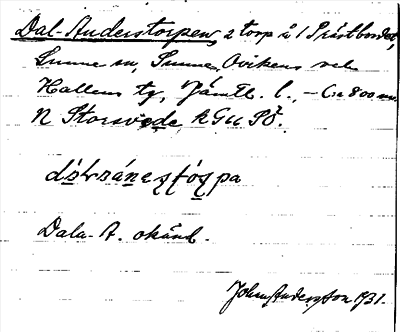 Dal-Anderstorpen, 2 torp å 1 Prästbordet,
Sunne sn, Sunne, Ovikens och
Hallens tg, Jämtl. l., – C:a 800 m.
N Storsvede, kGu PÖ.
Dala-A. okänd.
John Andersson 1931.